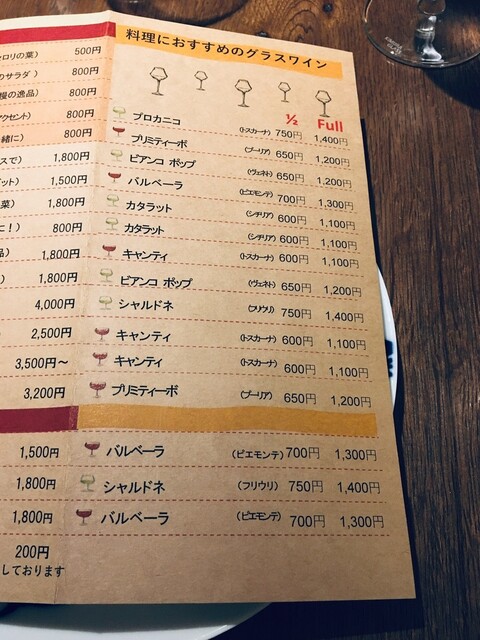 料理におすすめのグラスワイン
½ Full
ロリの葉) 500円
のサラダ ) 800円
慢の逸品) 800円
アクセント) 800円
緒に) 800円
スで) 1,800円
ット) 1,500円
菜) 1,800円
に!) 800円
品) 1,800円
) 1,800円
4,000円
2,500円
3,500円～
3,200円
1,500円
1,800円
1,800円
200円
しております
プロカニコ (トスカーナ) 750円 1,400円
プリミティーボ (プーリア) 650円 1,200円
ビアンコ ポップ (ヴェネト) 650円 1,200円
バルベーラ (ピエモンテ) 700円 1,300円
カタラット (シチリア) 600円 1,100円
カタラット (シチリア) 600円 1,100円
キャンティ (トスカーナ) 600円 1,100円
ビアンコ ポップ (ヴェネト) 650円 1,200円
シャルドネ (フリウリ) 750円 1,400円
キャンティ (トスカーナ) 600円 1,100円
キャンティ (トスカーナ) 600円 1,100円
プリミティーボ (プーリア) 650円 1,200円
バルベーラ (ピエモンテ) 700円 1,300円
シャルドネ (フリウリ) 750円 1,400円
バルベーラ (ピエモンテ) 700円 1,300円